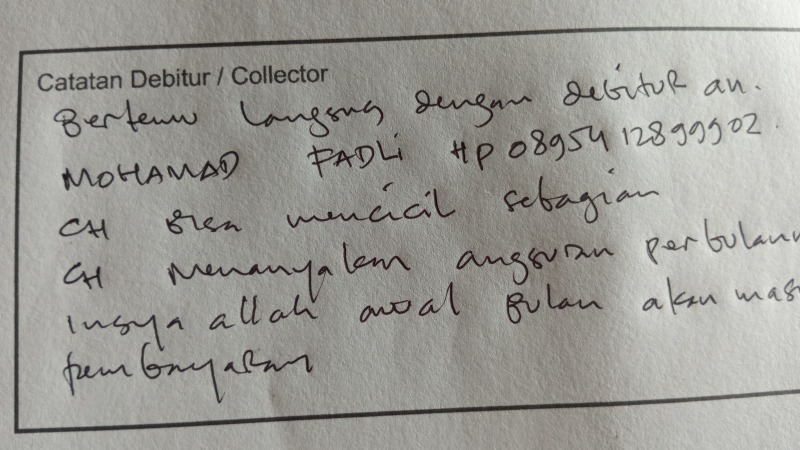 Catatan Debitur / Collector
Bertemu langsung dengan debitur an.
MOHAMAD FADLI HP 0895412899902.
CH bisa mencicil sebagian
CH Menanyakan angsuran perbulann
insya allah awal bulan akan mas
pembayaran